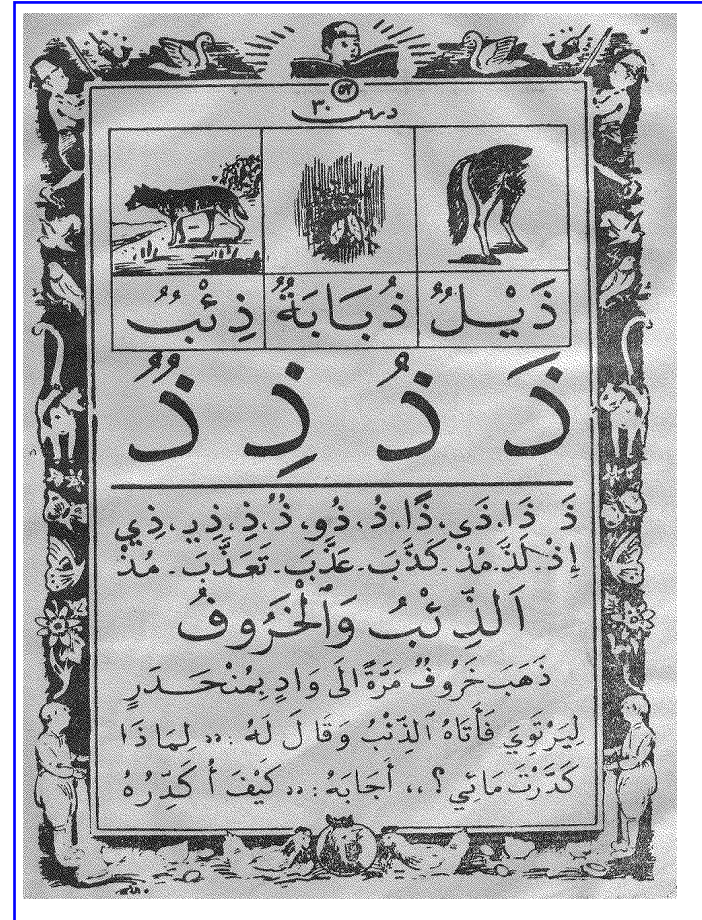 ٥٧
درس ٣٠
ذَيْلٌ ذُبَابَةٌ ذِئْبٌ
ذَ ذُ ذِ ذٌ
ذَ ذَا، ذَى، ذًا، ذُ، ذُو، ذٌ، ذِ، ذِيـ، ذِي
إِذْ ـ لَذَّ ـ مُذْ ـ كَذَّبَ ـ عَذَّبَ ـ تَعَذَّبَ ـ مُذْ
اَلذِّئْبُ وَٱلْخَرُوفُ
ذَهَبَ خَرُوفٌ مَرَّةً الَى وَادٍ بِمُنْحَـدَرٍ
لِيَرْتَوِيَ فَأَتَاهُ ٱلذِّئْبُ وَقَالَ لَهُ : «لِمَاذَا
كَدَّرْتَ مَائِي ؟» أَجَابَهُ : «كَيْفَ أُكَدِّرُهُ